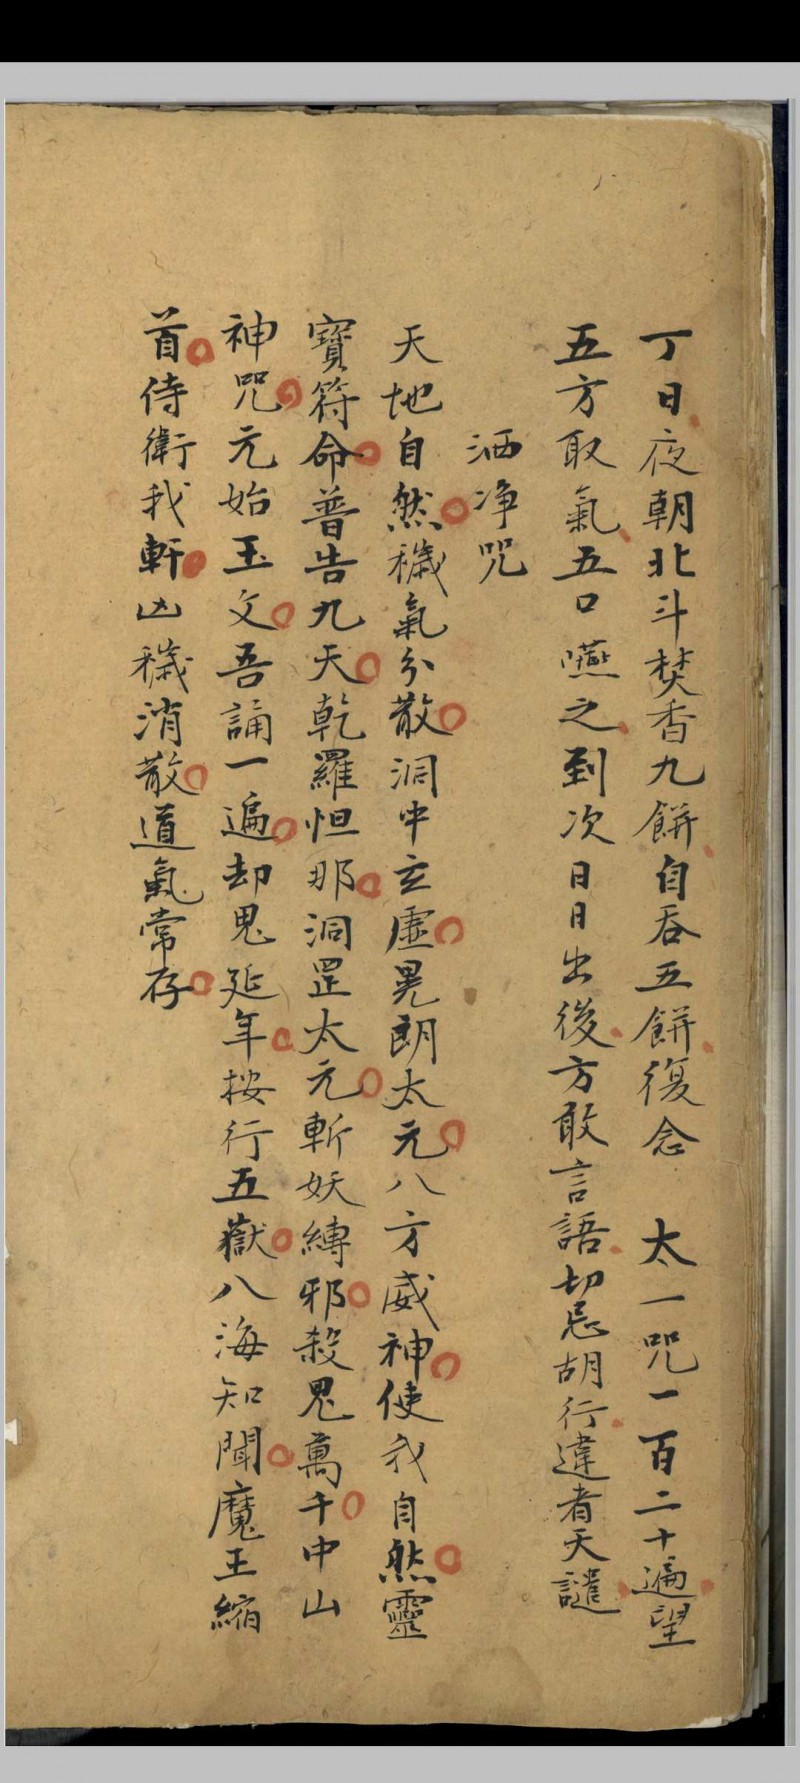 丁日夜朝北斗焚香九餅自吞五餅復念 太一咒一百二十遍望
五方取氣五口嚥之到次日日出後方敢言語切忌胡行違者天譴
洒净咒
天地自然穢氣分散洞中玄虛晃朗太元八方威神使我自然靈
寶符命普告九天乾羅怛那洞罡太元斬妖縛邪殺鬼萬千中山
神咒元始玉文吾誦一遍却鬼延年按行五嶽八海知聞魔王縮
首侍衛我軒凶穢消散道氣常存